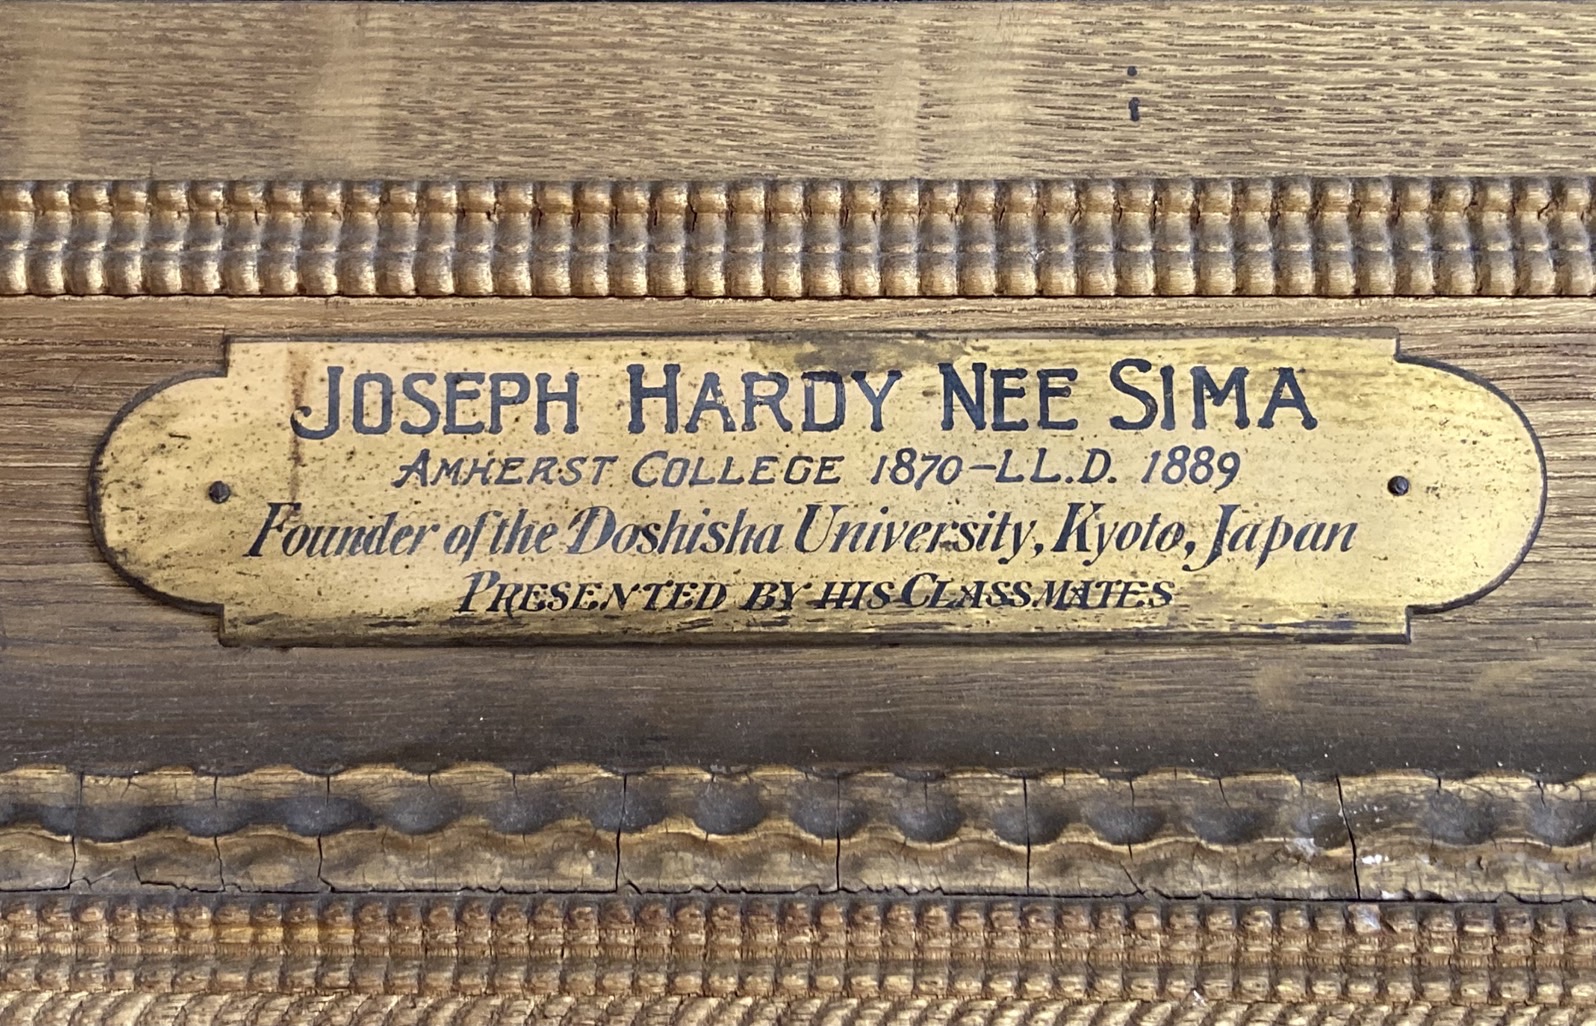 JOSEPH HARDY NEE SIMA
AMHERST COLLEGE 1870-LL.D. 1889
Founder of the Doshisha University, Kyoto, Japan
PRESENTED BY HIS CLASSMATES